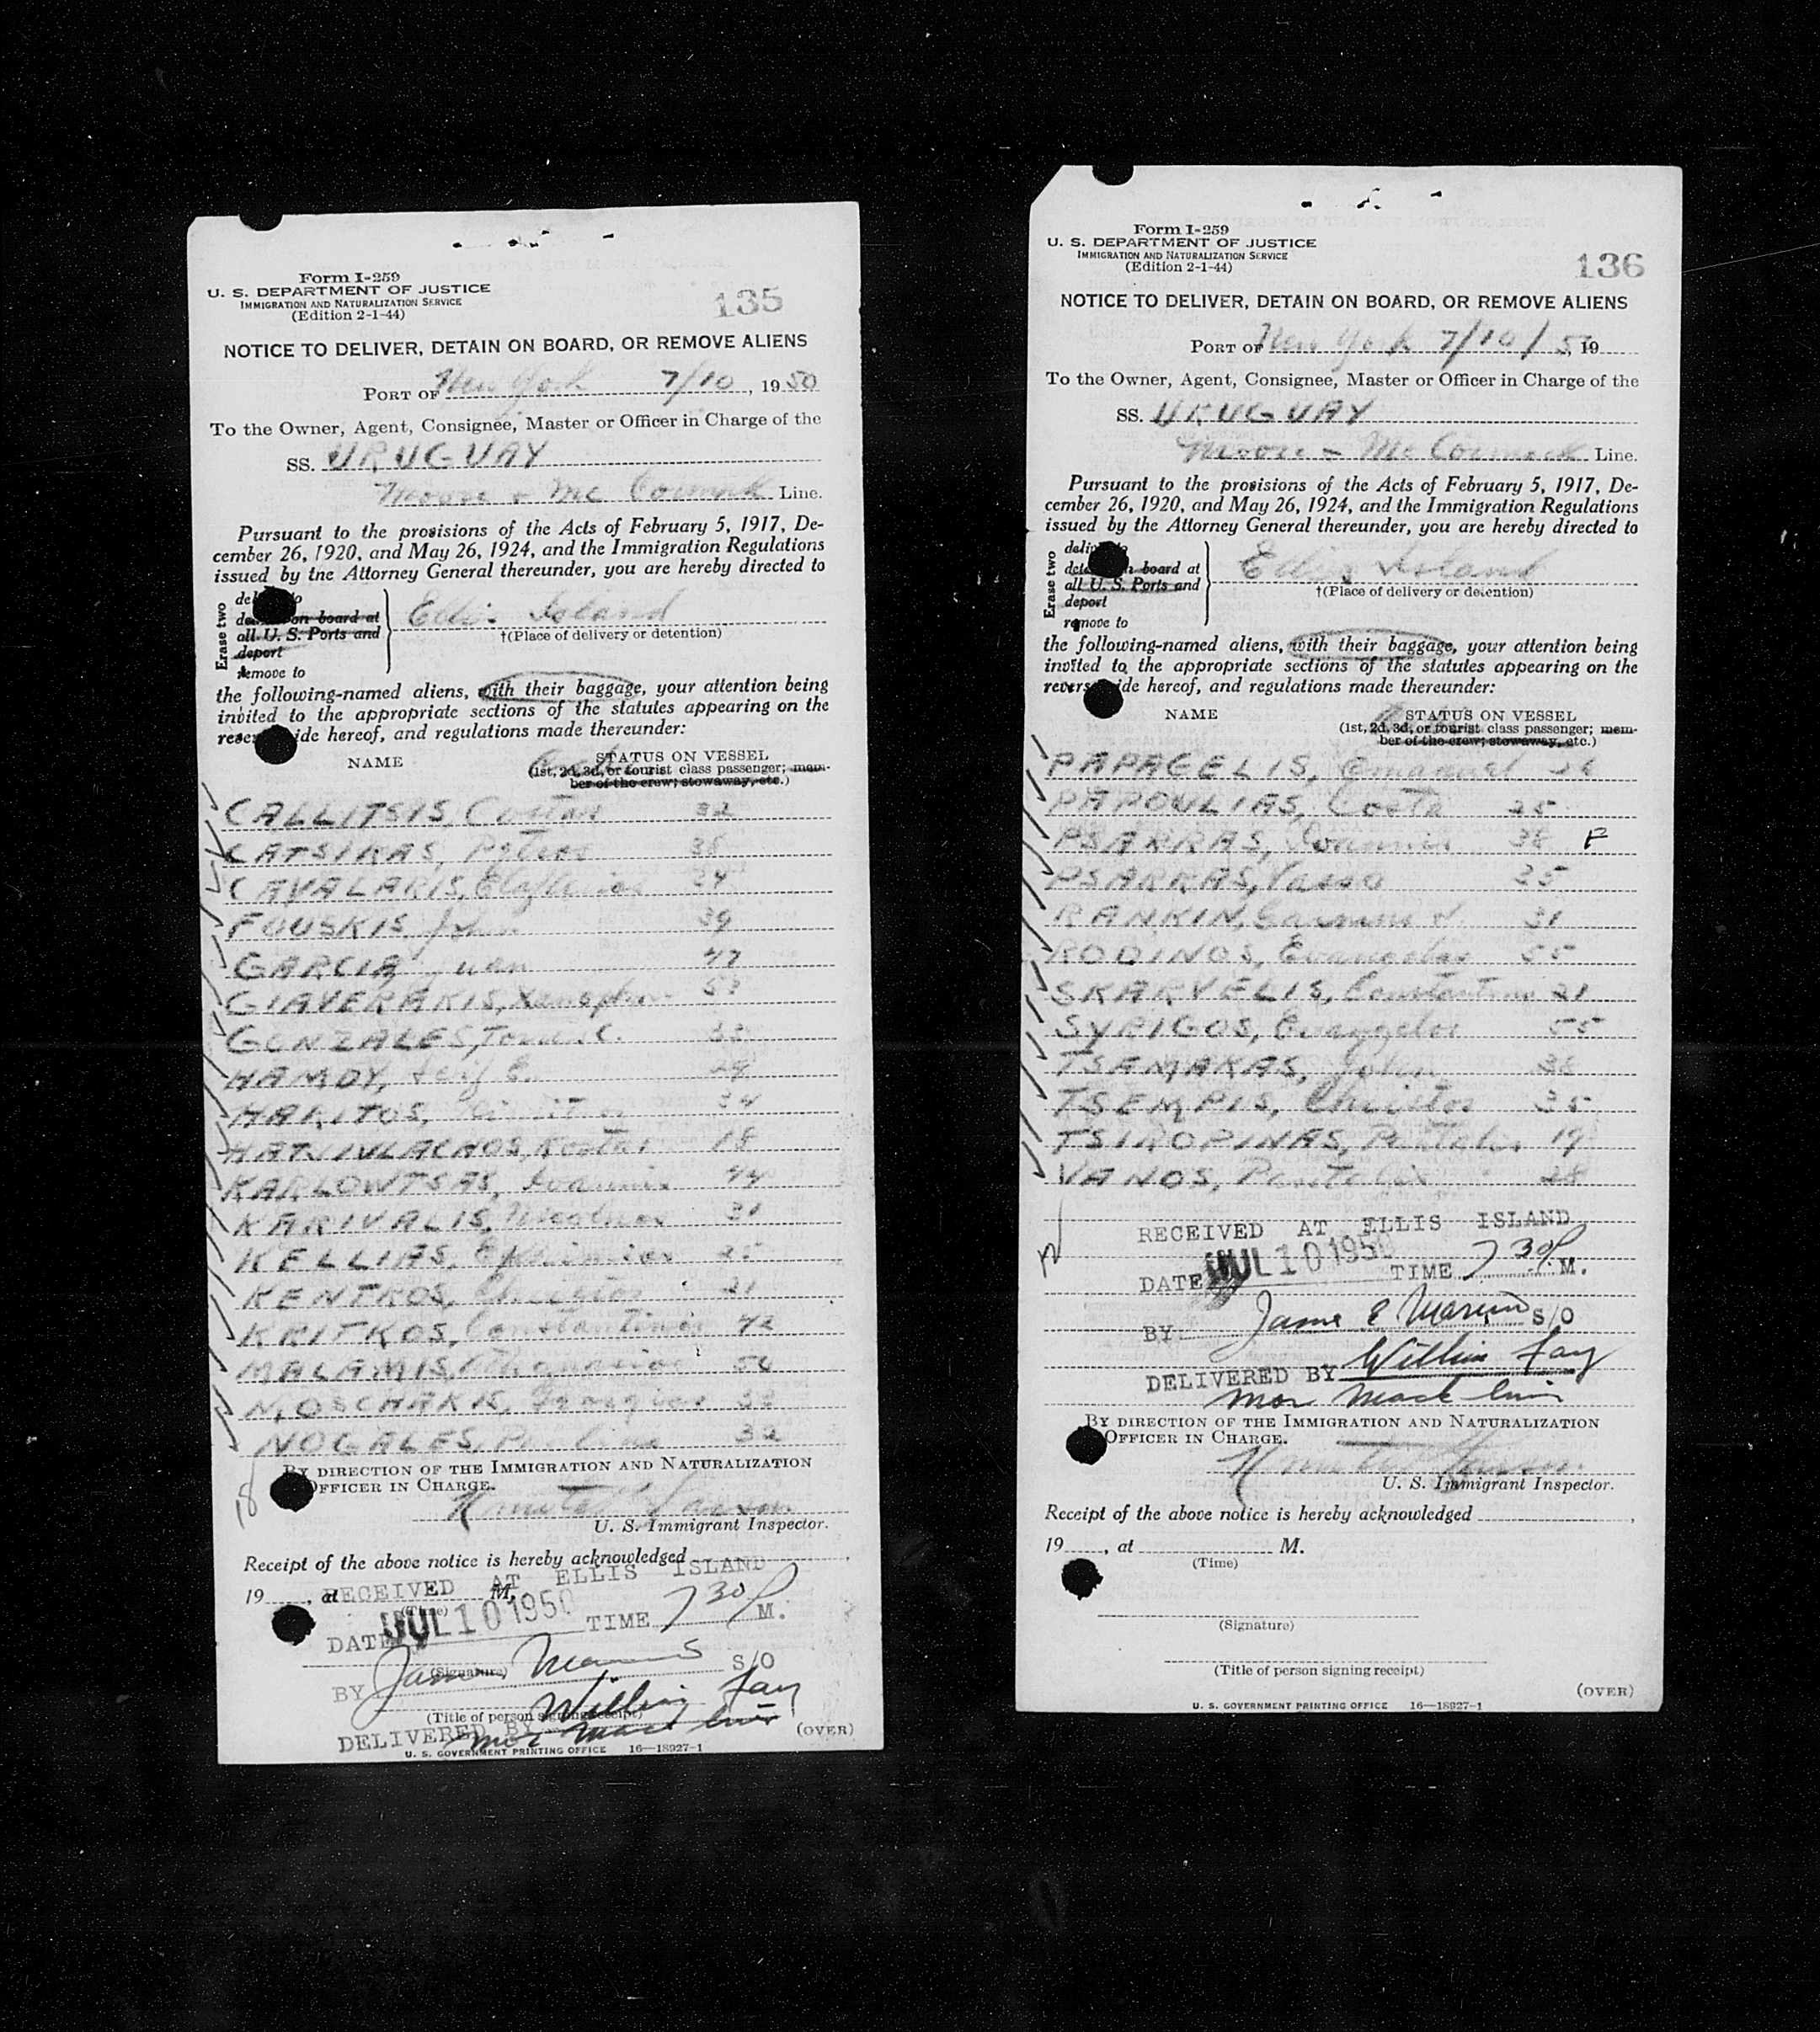 Form I-259
U. S. DEPARTMENT OF JUSTICE
IMMIGRATION AND NATURALIZATION SERVICE
(Edition 2-1-44)
135
NOTICE TO DELIVER, DETAIN ON BOARD, OR REMOVE ALIENS
PORT OF New York 7/10, 1950
To the Owner, Agent, Consignee, Master or Officer in Charge of the
SS. URUGUAY
Moore & McCormack Line.
Pursuant to the provisions of the Acts of February 5, 1917, De-
cember 26, 1920, and May 26, 1924, and the Immigration Regulations
issued by the Attorney General thereunder, you are hereby directed to
Erase two
on board at
all U. S. Ports and
deport
remove to
Ellis Island
†(Place of delivery or detention)
the following-named aliens, with their baggage, your attention being
invited to the appropriate sections of the statutes appearing on the
hereof, and regulations made thereunder:
NAME
STATUS ON VESSEL
(1st, 2d, 3d, or tourist class passenger; mem-
ber of the crew; stowaway, etc.)
CALLITSIS, 32
CATSIKAS, Petros 38
CAVALARIS, 34
FOUSKIS, John 39
GARCIA, Juan 47
GIAVERAKIS, Xenophon 53
GONZALES,
HAMDY, 29
HARITOS, 34
18
KARLOWTSAS, Ioannis 44
KARIVALIS, 31
KELLIAS, 25
KENTROS, Christos 21
KRITKOS, Constantinos 42
MALAMIS, 54
NOGALES, 32
18
BY DIRECTION OF THE IMMIGRATION AND NATURALIZATION
OFFICER IN CHARGE.
U. S. Immigrant Inspector.
Receipt of the above notice is hereby acknowledged
19 , at M.
(Time)
RECEIVED AT ELLIS ISLAND
DATE JUL 10 1950 TIME 7 30 P M.
(Signature)
BY James S/O
(Title of person signing receipt)
DELIVERED BY William Fay
Mor Mack Line
(OVER)
U. S. GOVERNMENT PRINTING OFFICE 16—18927-1
Form I-259
U. S. DEPARTMENT OF JUSTICE
IMMIGRATION AND NATURALIZATION SERVICE
(Edition 2-1-44)
136
NOTICE TO DELIVER, DETAIN ON BOARD, OR REMOVE ALIENS
PORT OF New York 7/10/50, 19
To the Owner, Agent, Consignee, Master or Officer in Charge of the
SS. URUGUAY
Moore - McCormack Line.
Pursuant to the provisions of the Acts of February 5, 1917, De-
cember 26, 1920, and May 26, 1924, and the Immigration Regulations
issued by the Attorney General thereunder, you are hereby directed to
Erase two
on board at
all U. S. Ports and
deport
remove to
Ellis Island
†(Place of delivery or detention)
the following-named aliens, with their baggage, your attention being
invited to the appropriate sections of the statutes appearing on the
hereof, and regulations made thereunder:
NAME
STATUS ON VESSEL
(1st, 2d, 3d, or tourist class passenger; mem-
ber of the crew; stowaway, etc.)
PAPAGELIS, Emanuel
PAPOULIAS, Costa 25
PSARRAS, Ioannis 38 F
PSARRAS, Vasso 35
RANKIN, 31
RODINOS, Evangelos 55
SKARVELIS, Constantinos 21
SYRIGOS, Evangelos 55
TSEMAKAS, John 38
TSEMPIS, Christos 35
TSIROPINAS, 19
VANOS, Pantelis 28
12
RECEIVED AT ELLIS ISLAND
DATE JUL 10 1950 TIME 7 30 P M.
BY James E S/O
DELIVERED BY William Fay
Mor Mack Line
BY DIRECTION OF THE IMMIGRATION AND NATURALIZATION
OFFICER IN CHARGE.
U. S. Immigrant Inspector.
Receipt of the above notice is hereby acknowledged ,
19 , at M.
(Time)
(Signature)
(Title of person signing receipt)
(OVER)
U. S. GOVERNMENT PRINTING OFFICE 16—18927-1